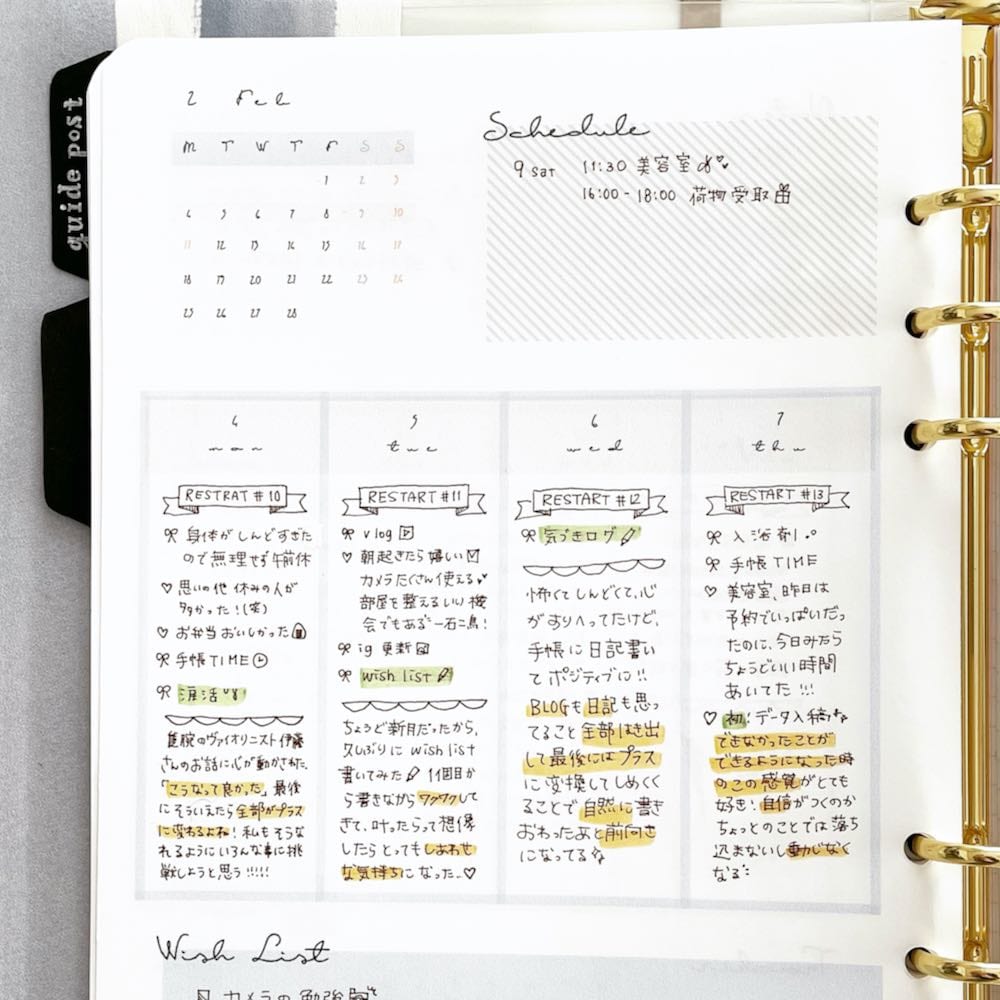 guide post
2 Feb
M T W T F S S
1 2 3
4 5 6 7 8 9 10
11 12 13 14 15 16 17
18 19 20 21 22 23 24
25 26 27 28
Schedule
9 sat 11:30 美容室
16:00-18:00 荷物受取
4
mon
RESTRAT #10
身体がしんどすぎた
ので無理せず午前休
思いの他 休みの人が
多かった!(笑)
お弁当おいしかった
手帳TIME
涙活
隻腕のヴァイオリニスト伊藤
さんのお話に心が動かされた。
「こうなって良かった」最後
にそういえたら全部がプラス
に変わるよね!私もそうな
れるようにいろんな事に挑
戦しようと思う!!!!!
5
tue
RESTART #11
vlog
朝起きたら嬉しい
カメラたくさん使える
部屋を整えるいい機
会でもある 一石二鳥!
ig 更新
wish list
ちょうど新月だったから、
久しぶりに wish list
書いてみた 1個目か
ら書きながらワクワクして
きて、叶ったらって想像
したらとってもしあわせ
な気持ちになった..♡
6
wed
RESTART #12
気づきログ
怖くてしんどくて、心
がすりへってたけど、
手帳に日記書い
てポジティブに!!
BLOGも日記も思っ
てること全部はき出
して最後にはプラス
に変換してしめくく
ることで自然に書き
おわったあと前向き
になってる
7
thu
RESTART #13
入浴剤
手帳TIME
美容室、昨日は
予約でいっぱいだっ
たのに、今日みたら
ちょうどいい時間
あいてた!!!
初!データ入稿
できなかったことが
できるようになった時
のこの感覚がとても
好き!自信がつくのか
ちょっとのことでは落ち
込まないし動じなく
なる
Wish List
カメラの勉強